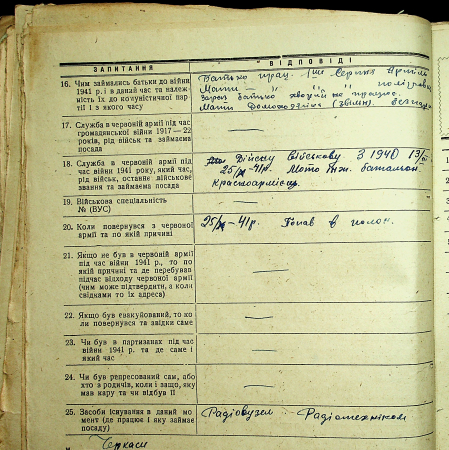 ЗАПИТАННЯ
ВІДПОВІДІ
16. Чим займались батьки до війни
1941 р. і в даний час та належ-
ність їх до комуністичної пар-
тії і з якого часу
Батько прац.
Мати — " — " —
Зараз батько хворий не працює.
Мати Домохозяйка
17. Служба в червоній армії під час
громадянської війни 1917—22
років, рід військ та займаєма
посада
—
18. Служба в червоній армії під
час війни 1941 року, який час,
рід військ, останнє військове
звання та займаєма посада
Дійсну Військову З 1940
25/ — 41р. Мото батальон
Красноармієць.
19. Військова спеціальність
№ (ВУС)
—
20. Коли повернувся з червоної
армії та по якій причині
25/ — 41р. Попав в полон.
21. Якщо не був в червоній армії
під час війни 1941 р., то по
якій причині та де перебував
підчас відходу червоної армії
(чим може підтвердити, а коли
свідками то їх адреса)
—
22. Якщо був евакуйований, то ко
ли повернувся та звідки саме
—
23. Чи був в партизанах під час
війни 1941 р. та де саме і
який час
—
24. Чи був репресований сам, або
хто з родичів, коли і защо, яку
мав кару та чи відбув її
—
25. Засоби існування в даний мо
мент (де працює і яку займає
посаду)
Радіовузел — Радіотехніком
Черкаси